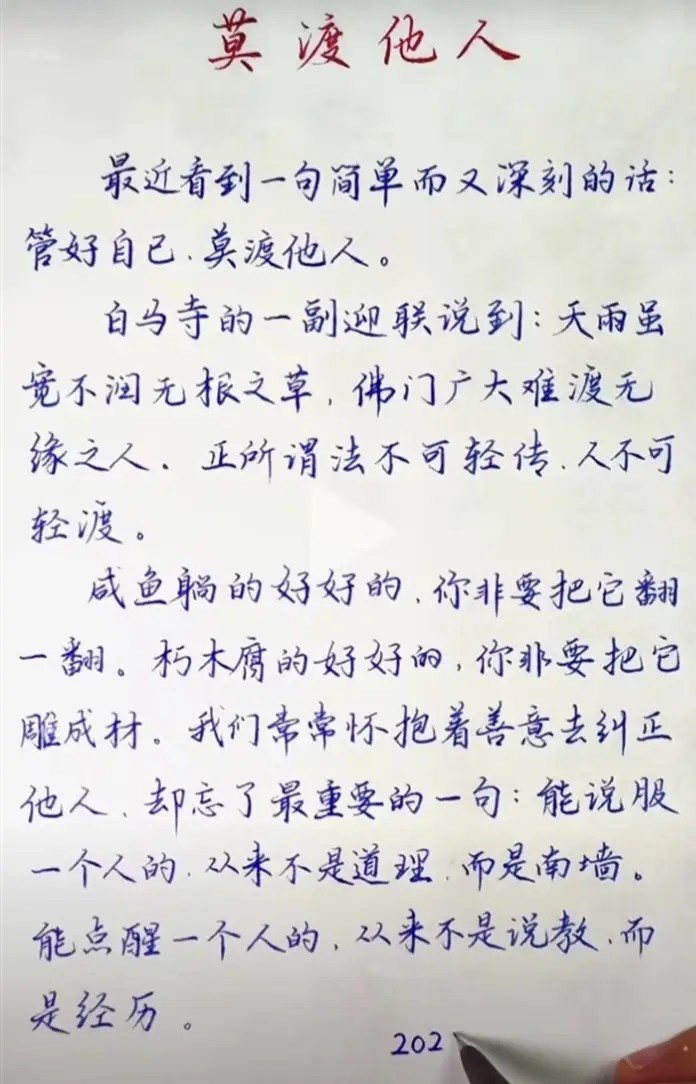 莫渡他人
最近看到一句简单而又深刻的话：
管好自己、莫渡他人。
白马寺的一副迎联说到：天雨虽
宽不润无根之草，佛门广大难渡无
缘之人。正所谓法不可轻传、人不可
轻渡。
咸鱼躺的好好的，你非要把它翻
一翻。朽木腐的好好的，你非要把它
雕成材。我们常常怀抱着善意去纠正
他人、却忘了最重要的一句：能说服
一个人的、从来不是道理、而是南墙。
能点醒一个人的，从来不是说教、而
是经历。
202